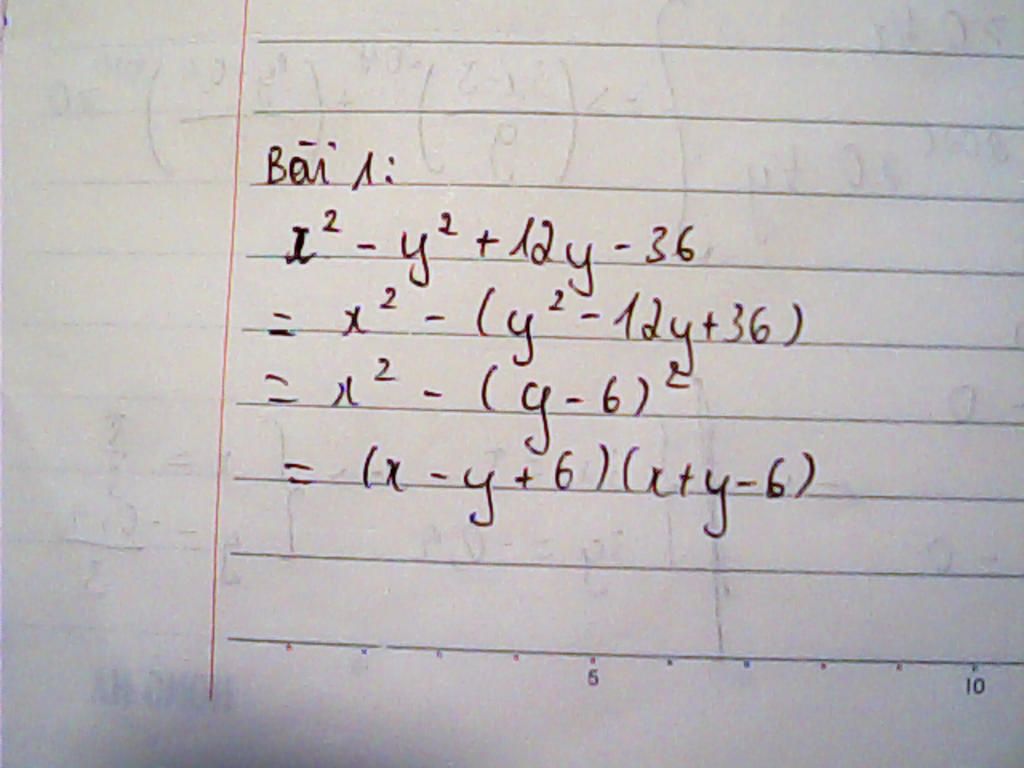 Bài 1:
x² - y² + 12y - 36
= x² - (y² - 12y + 36)
= x² - (y - 6)²
= (x - y + 6)(x + y - 6)
5 10